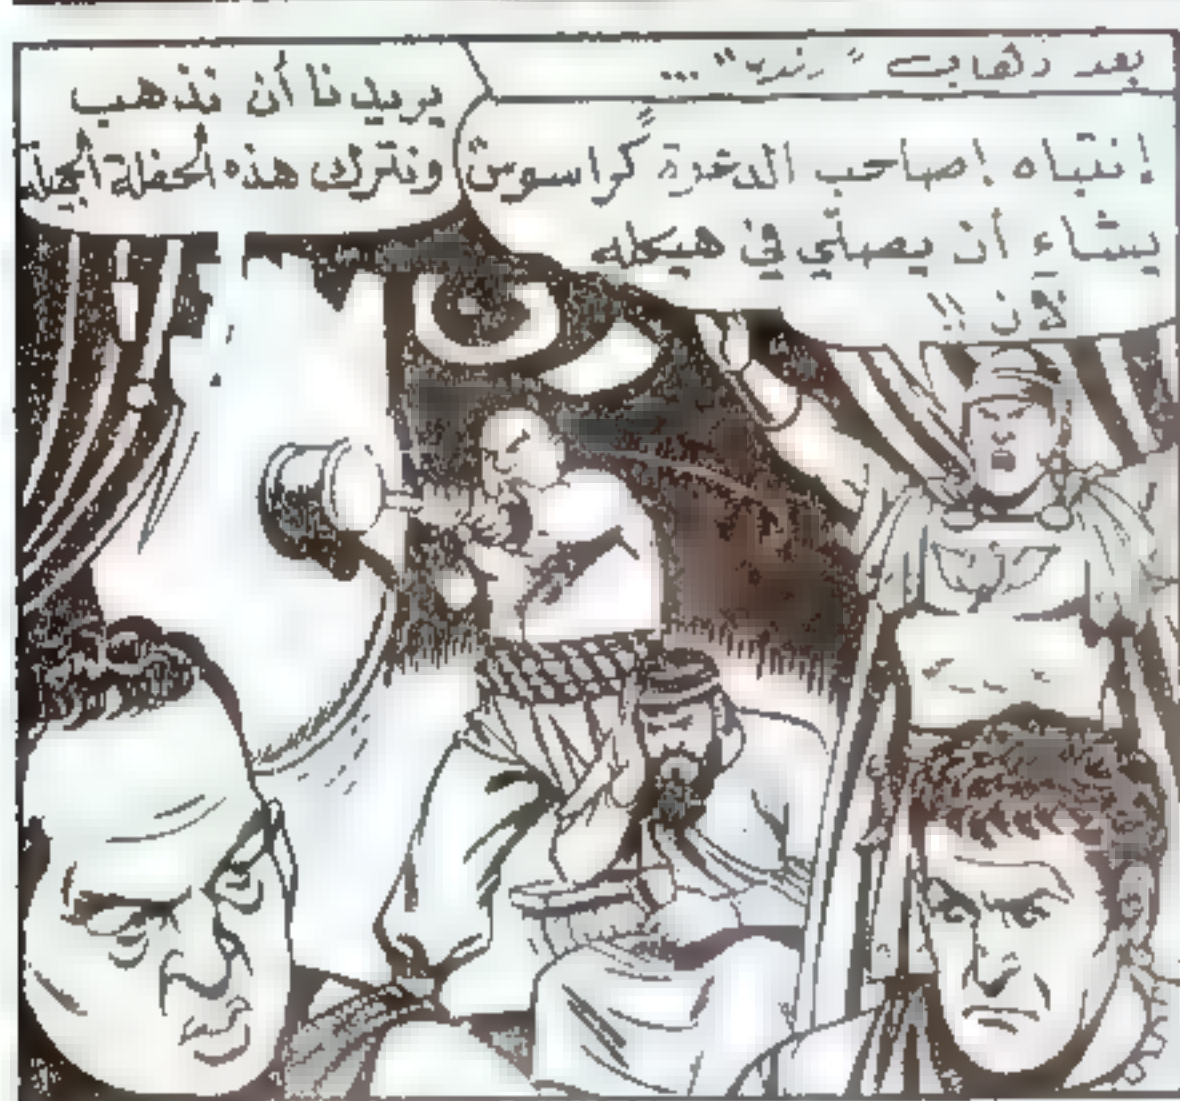 بعد ذهاب "رندر" ...
إنتباه إصاحب الدعوة كراسوس
يشاء أن يصلّي في هيكله
لآن !!
يريدنا أن نذهب
ونترك هذه الحفلة الجميلة